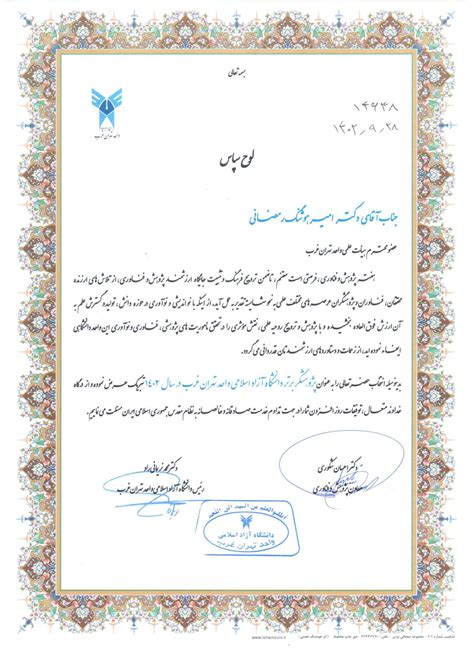 بسمه تعالی
واحد تهران غرب
۱۴۶۳۸
۱۴۰۲,۹,۲۸
لوح سپاس
جناب آقای دکتر امیر هوشنگ رمضانی
عضو محترم هیات علمی واحد تهران غرب
هفته پژوهش و فناوری، فرصتی است مغتنم، تا ضمن ترویج فرهنگ و تثبیت جایگاه ارزشمند پژوهش و فناوری، از تلاش های ارزنده
محققان، فناوران و پژوهشگران عرصه های مختلف علمی به نحو شایسته تقدیر به عمل آید. از اینکه با نواندیشی و نوآوری در حوزه دانش، تولید و گسترش علم به
آن ارزش فوق العاده بخشیده و با پژوهش و ترویج روحیه علمی، نقش مؤثری را در تحقق ماموریت های پژوهشی، فناوری و نوآوری این واحد دانشگاهی
ایفاء نموده اید، از زحمات و دستاوردهای ارزشمندتان قدردانی می گردد.
بدینوسیله انتخاب حضرتعالی را به عنوان پژوهشگر برتر دانشگاه آزاد اسلامی واحد تهران غرب در سال ۱۴۰۲ تبریک عرض نموده و از درگاه
خداوند متعال، توفیقات روز افزون شما را در جهت تداوم خدمت صادقانه و خالصانه به نظام مقدس جمهوری اسلامی ایران مسئلت می نماییم.
دکتر احسان شکوری
معاون پژوهش و فناوری
دکتر محمد نریمانی راد
رئیس دانشگاه آزاد اسلامی واحد تهران غرب
اطلبوا العلم من المهد الی اللحد
دانشگاه آزاد اسلامی
واحد تهران غرب